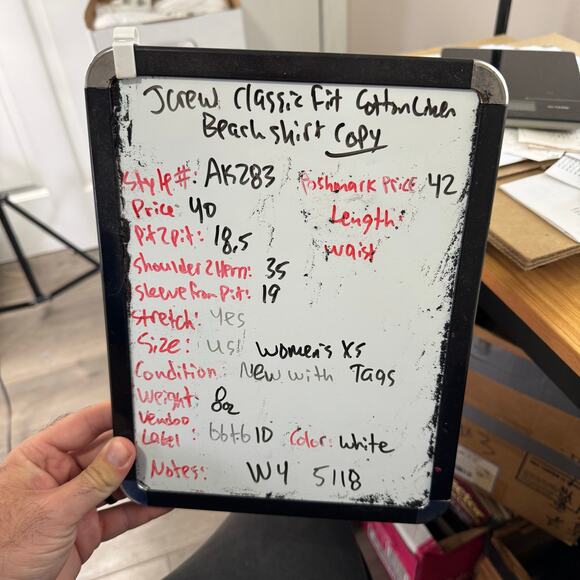 Jcrew Classic Fit Cotton Linen
Beach shirt Copy
Style#: AK283 Poshmark Price 42
Price 40 Length:
Pit2pit: 18.5 waist
Shoulder2Hem: 35
Sleeve from Pit: 19
Stretch: Yes
Size: us: women's XS
Condition: New with Tags
Weight: 8oz
Vendoo
Label: 10 Color: white
Notes: W4 5118